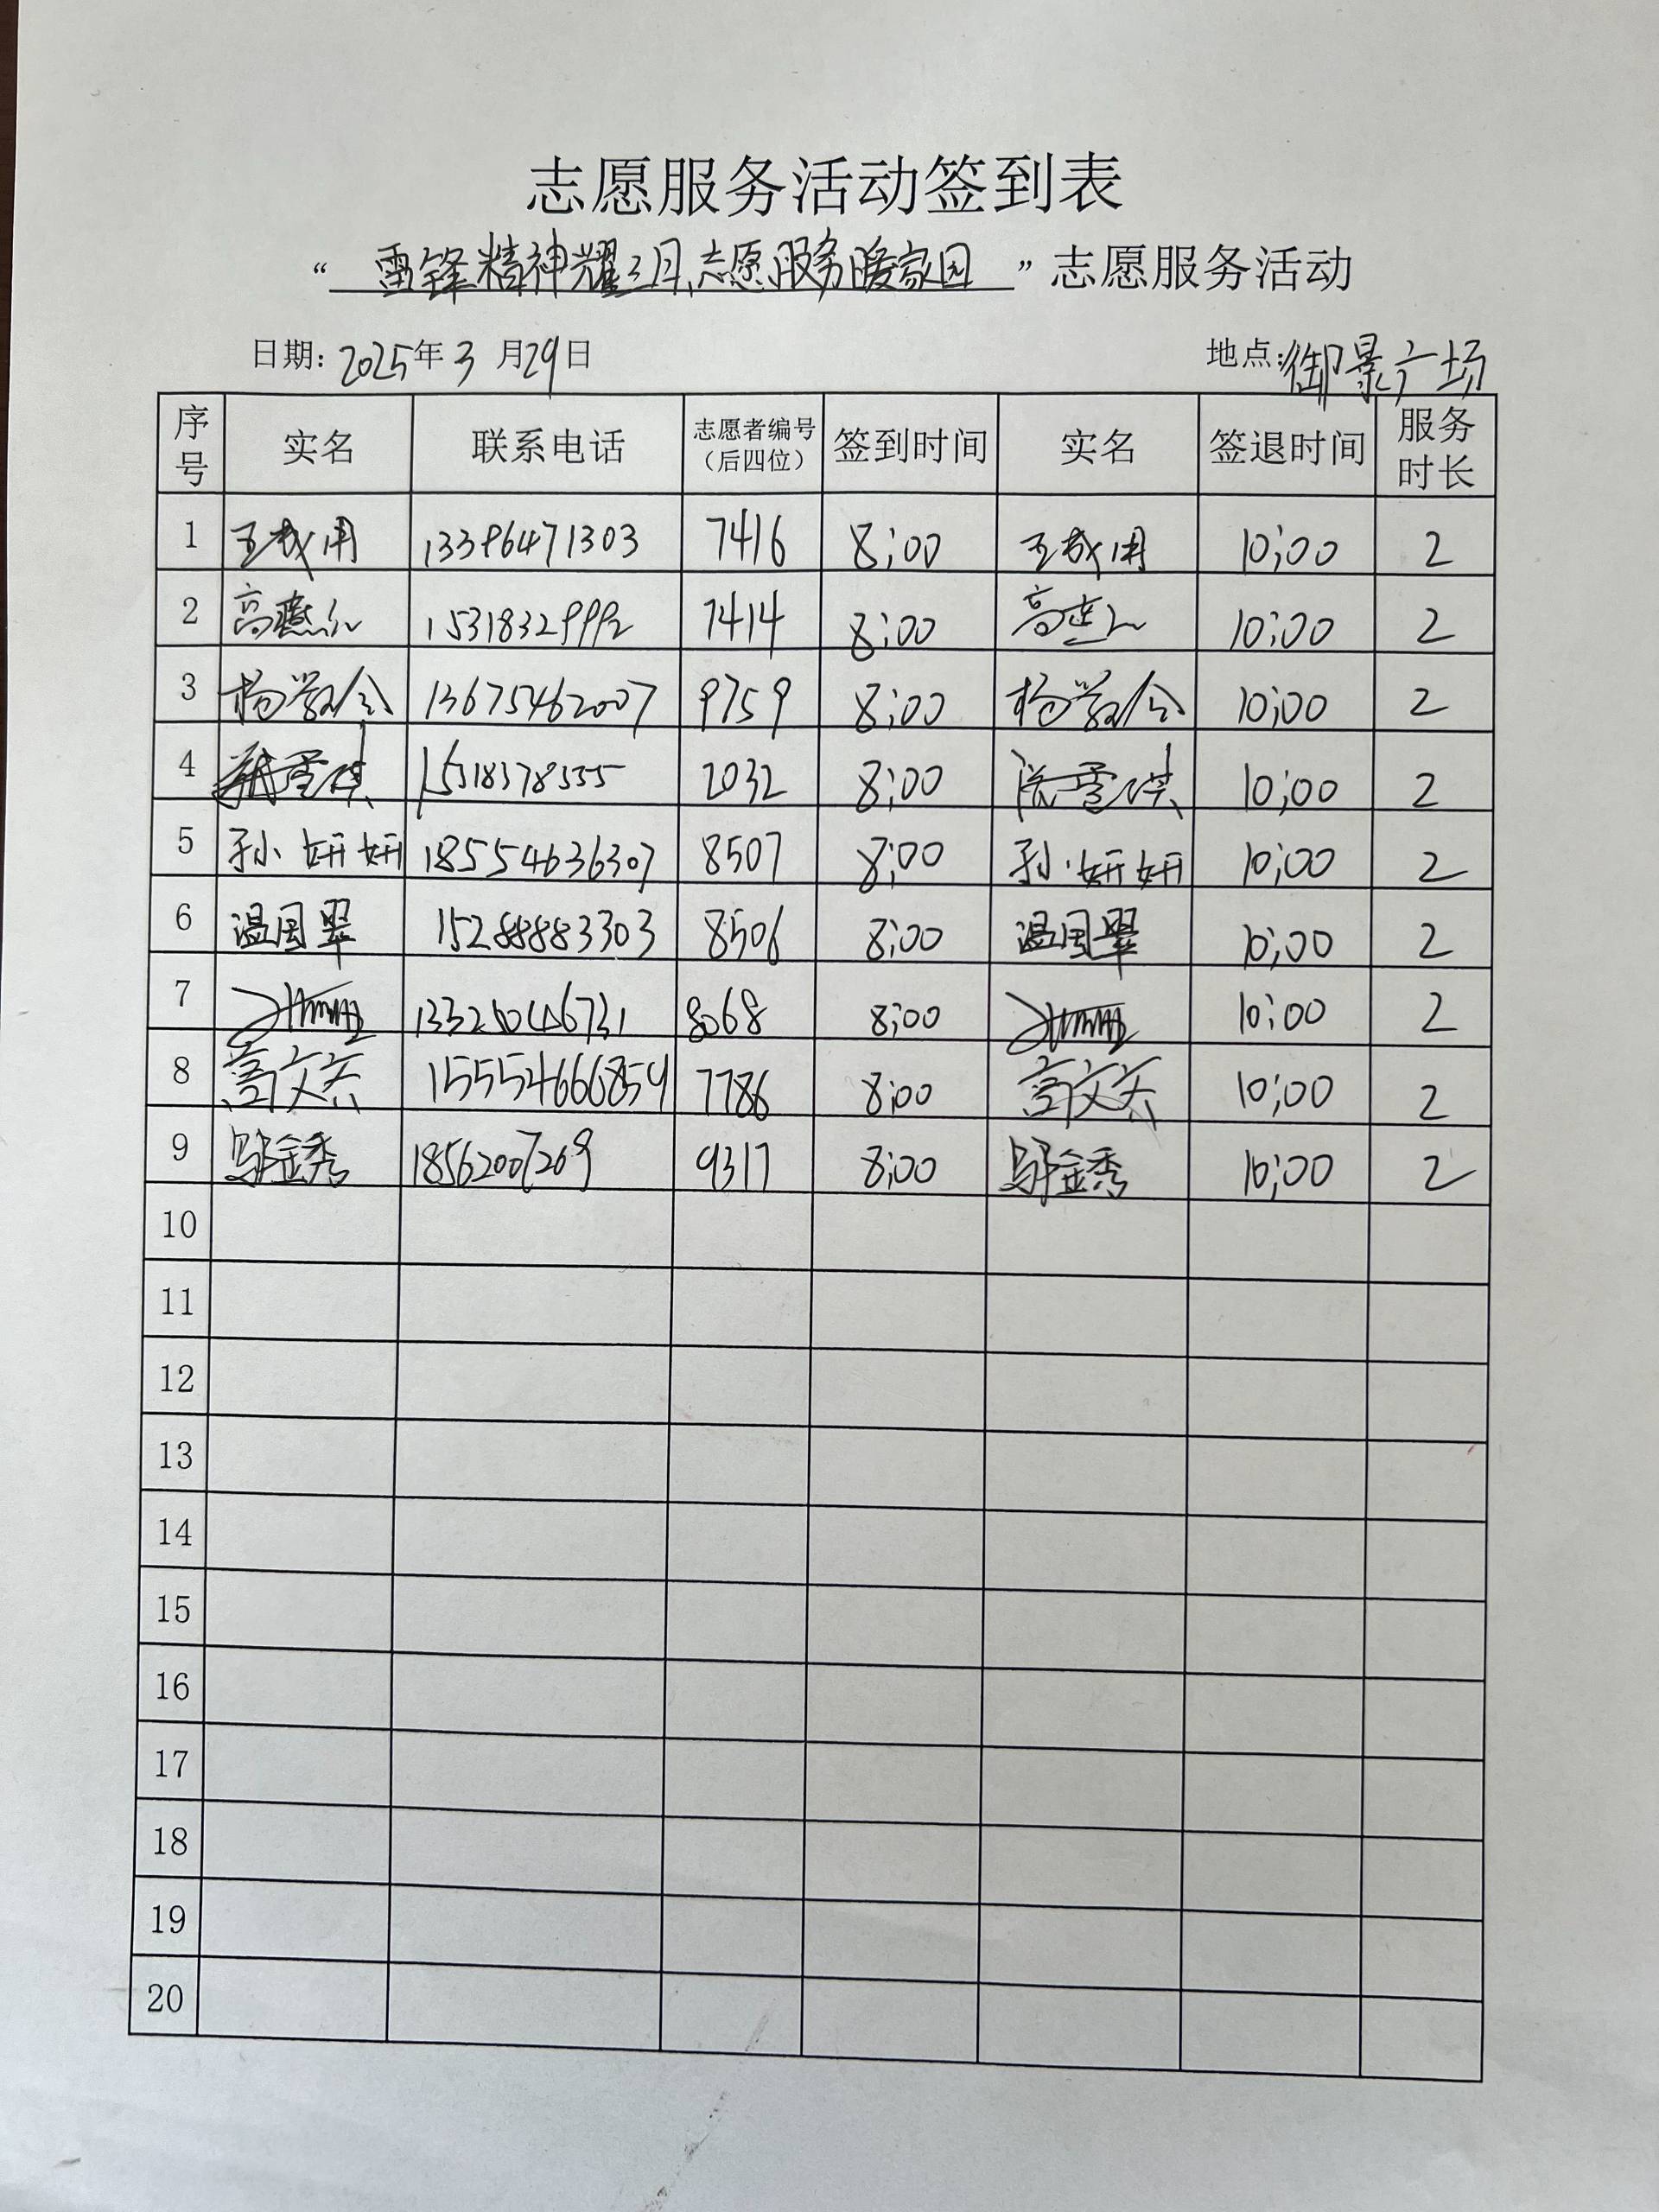 志愿服务活动签到表
“雷锋精神耀三月、志愿服务暖家园”志愿服务活动
日期：2025年3月29日 地点：御景广场
序号 实名 联系电话 志愿者编号（后四位） 签到时间 实名 签退时间 服务时长
1 13396471303 7416 8:00 10:00 2
2 高燕 15318329992 7414 8:00 高燕 10:00 2
3 杨 13675462007 9759 8:00 杨 10:00 2
4 15318378555 2032 8:00 10:00 2
5 孙妍妍 18554636307 8507 8:00 孙妍妍 10:00 2
6 温国翠 15288883303 8506 8:00 温国翠 10:00 2
7 8068 8:00 10:00 2
8 高文 15554666859 7786 8:00 高文 10:00 2
9 邬金秀 18562007269 9317 8:00 邬金秀 10:00 2
10
11
12
13
14
15
16
17
18
19
20